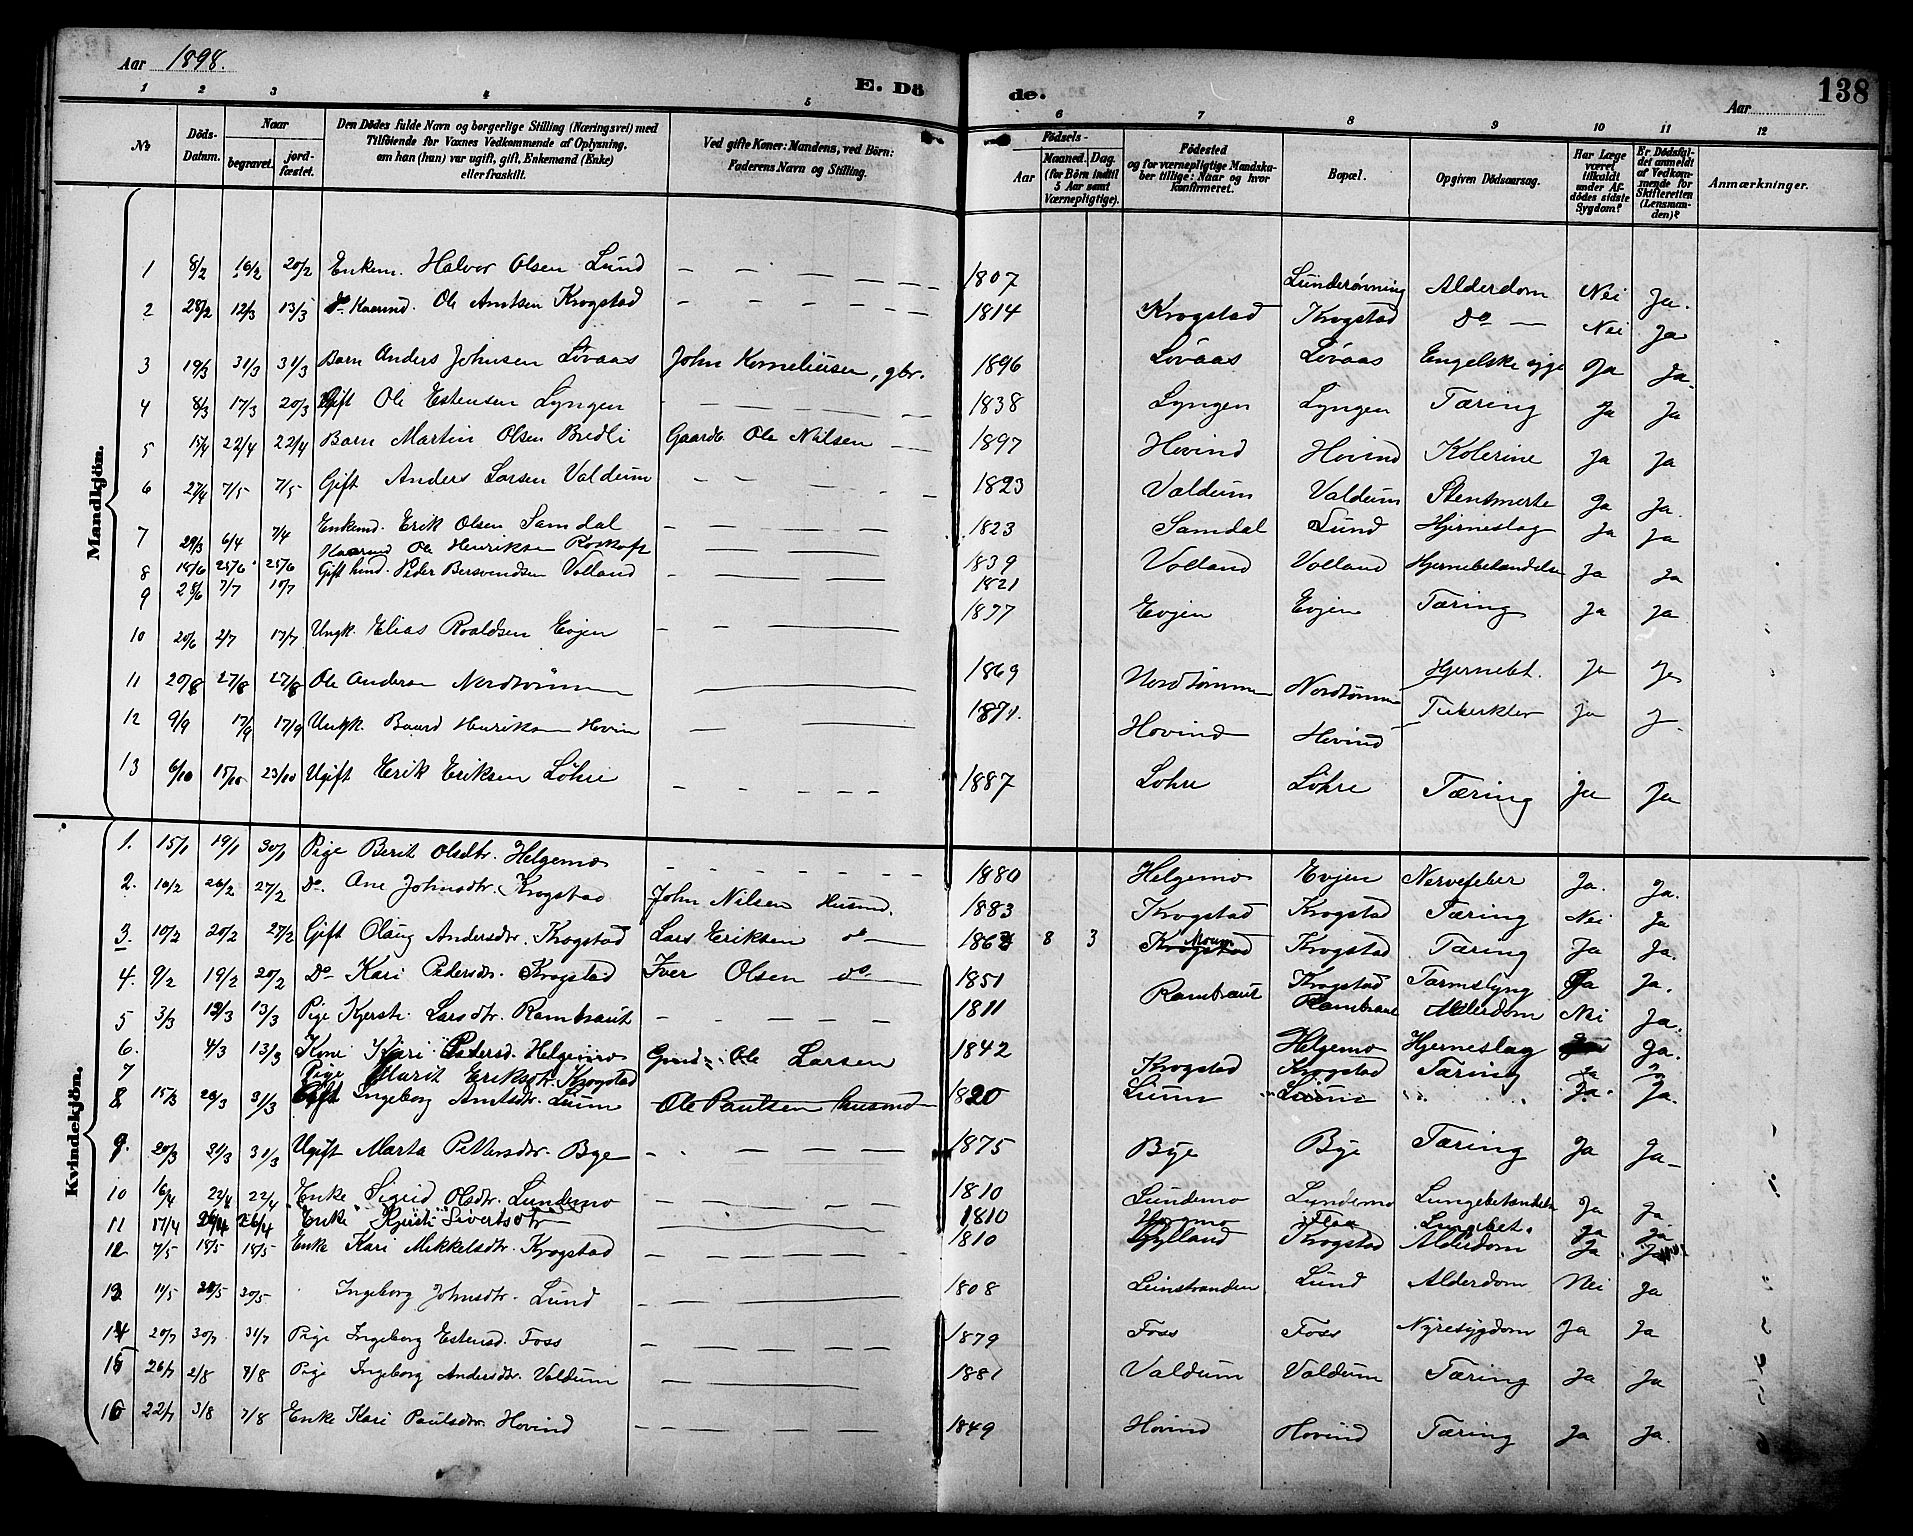 Aar 1898.
E. Dö
de.
Aar
138
1 2 3 4 5 6 7 8 9 10 11 12
No
Döds-Datum.
Naar
begravet.
jord-fæstet.
Den Dödes fulde Navn og borgerlige Stilling (Næringsvei) med
Tilföiende for Voxnes Vedkommende af Oplysning,
om han (hun) var ugift, gift, Enkemand (Enke)
eller fraskilt.
Ved gifte Koner: Mandens, ved Börn:
Faderens Navn og Stilling.
Födsels-
Aar
Maaned. Dag.
(for Börn indtil
5 Aar samt
Værnepligtige).
Födested
og for værnepligtige Mandska-
ber tillige: Naar og hvor
konfirmeret.
Bopæl.
Opgiven Dödsaarsag.
Har Læge
været
tilkaldt
under Af-
dödes sidste
Sygdom?
Er Dödsfal-
det anmeldt
af Vedkom-
mende for
Skifteretten
(Lensman-
den)?
Anmærkninger.
Mandkjön.
1 8/2 16/2 20/2 Enkem. Halvor Olsen Lund 1807 Alderdom Nei Ja.
2 28/2 12/3 13/3 do Kaarmd. Ole Arntsen Krogstad 1814 Krogstad Krogstad Do Nei Ja
3 19/3 31/3 31/3 Barn Anders Johnsen Løvaas John Korneliusen, gbr. 1896 Løvaas Løvaas Engelske syge Ja Ja.
4 8/3 17/3 20/3 Gift Ole Estensen Lyngen 1838 Lyngen Lyngen Tæring Ja Ja
5 15/4 22/4 22/4 Barn Martin Olsen Bredli Gaardb. Ole Nilsen 1897 Hovind Hovind Kolerine Ja Ja
6 27/4 7/5 7/5 Gift Anders Larsen Valdum 1823 Valdum Valdum Stensmerte Ja Ja.
7 29/3 6/4 7/4 Enkemd. Erik Olsen Samdal 1823 Samdal Lund Hjerneslag Ja Ja
8 18/6 25/6 25/6 Kaarmd Ole Henriksen 1839 Volland Volland Ja Ja
9 25/6 7/7 10/7 Gift husd. Peder Bersvendsen Volland 1821
10 20/6 2/7 17/7 Ungk. Elias Roaldsen Evjen 1877 Evjen Evjen Tæring Ja Ja
11 20/8 27/8 27/8 Ole Andersen 1869 Hjernebet. Ja Ja
12 9/9 17/9 17/9 Ungk. Baard Henriksen Hovin 1871. Hovind Hovind Ja
13 6/10 15/10 23/10 Ugift Erik Eriksen Löhre 1887 Lohre Löhre Tæring Ja Ja
Kvindekjön.
1. 15/1 19/1 30/1 Pige Berit Olsdtr. Helgemo 1880 Helgemo Evjen Nervefeber Ja. Ja.
2. 10/2 26/2 27/2 Do. Ane Johnsdtr. Krogstad John Nilsen Husmd. 1883 Krogstad Krogstad Tæring Nei Ja
3. 10/2 20/2 27/2 Gift Olaug Andersdtr. Krogstad Lars Eriksen do 8 3 Krogstad Krogstad Tæring Ja Ja.
4. 9/2 19/2 20/2 Do Kari Pedersdtr. Krogstad Iver Olsen do. 1851 Krogstad Tarmslyng Ja Ja.
5 3/3 12/3 13/3 Pige Kjersti Larsdtr. Rambraut 1811 Rambraut Rambraut Alderdom Nei Ja.
6. 4/3 13/3 Kone Kari Petersd. Helgemo Ole Larsen 1842 Helgemo Hjerneslag Ja.
7 Pige Marit Eriksdtr. Krogstad Krogstad Krogstad Tæring Ja Ja
8 15/3 20/3 31/3 Gift Ingeborg Arntsdtr. Luum Ole Paulsen husmd 1820 Luum Luum " " Ja. Ja.
9. 20/3 31/3 31/3 Ugift Marta Pettersdtr. Bye 1875 Bye Bye Tæring Ja Ja
10 16/4 22/4 22/4 Enke Sigrid Olsdtr. Lundemo 1810 Lundemo Lundemo Lungebetændelse Ja Ja
11 17/4 26/4 26/4 Enke Kjersti Sivertsdtr 1810 Flaa Lungebet. Ja Ja
12 7/5 18/5 18/5 Enke Kari Mikkelsdtr. Krogstad 1810 Gylland Krogstad Alderdom Ja Ja
13 11/5 20/5 20/5 Ingeborg Johnsdtr. Lund 1808 Leinstranden Lund Alderdom Nei Ja
14 20/7 30/7 31/7 Pige Ingeborg Estensd. Foss 1879 Foss Foss Nyresygdom Ja Ja
15 26/7 2/8 7/8 Pige Ingeborg Andersdtr. Valdum 1881 Valdum Valdum Tæring Ja Ja
16 22/7 3/8 7/8 Enke Kari Paulsdtr. Hovind 1849 Hovind Hovind Tæring Ja Ja.